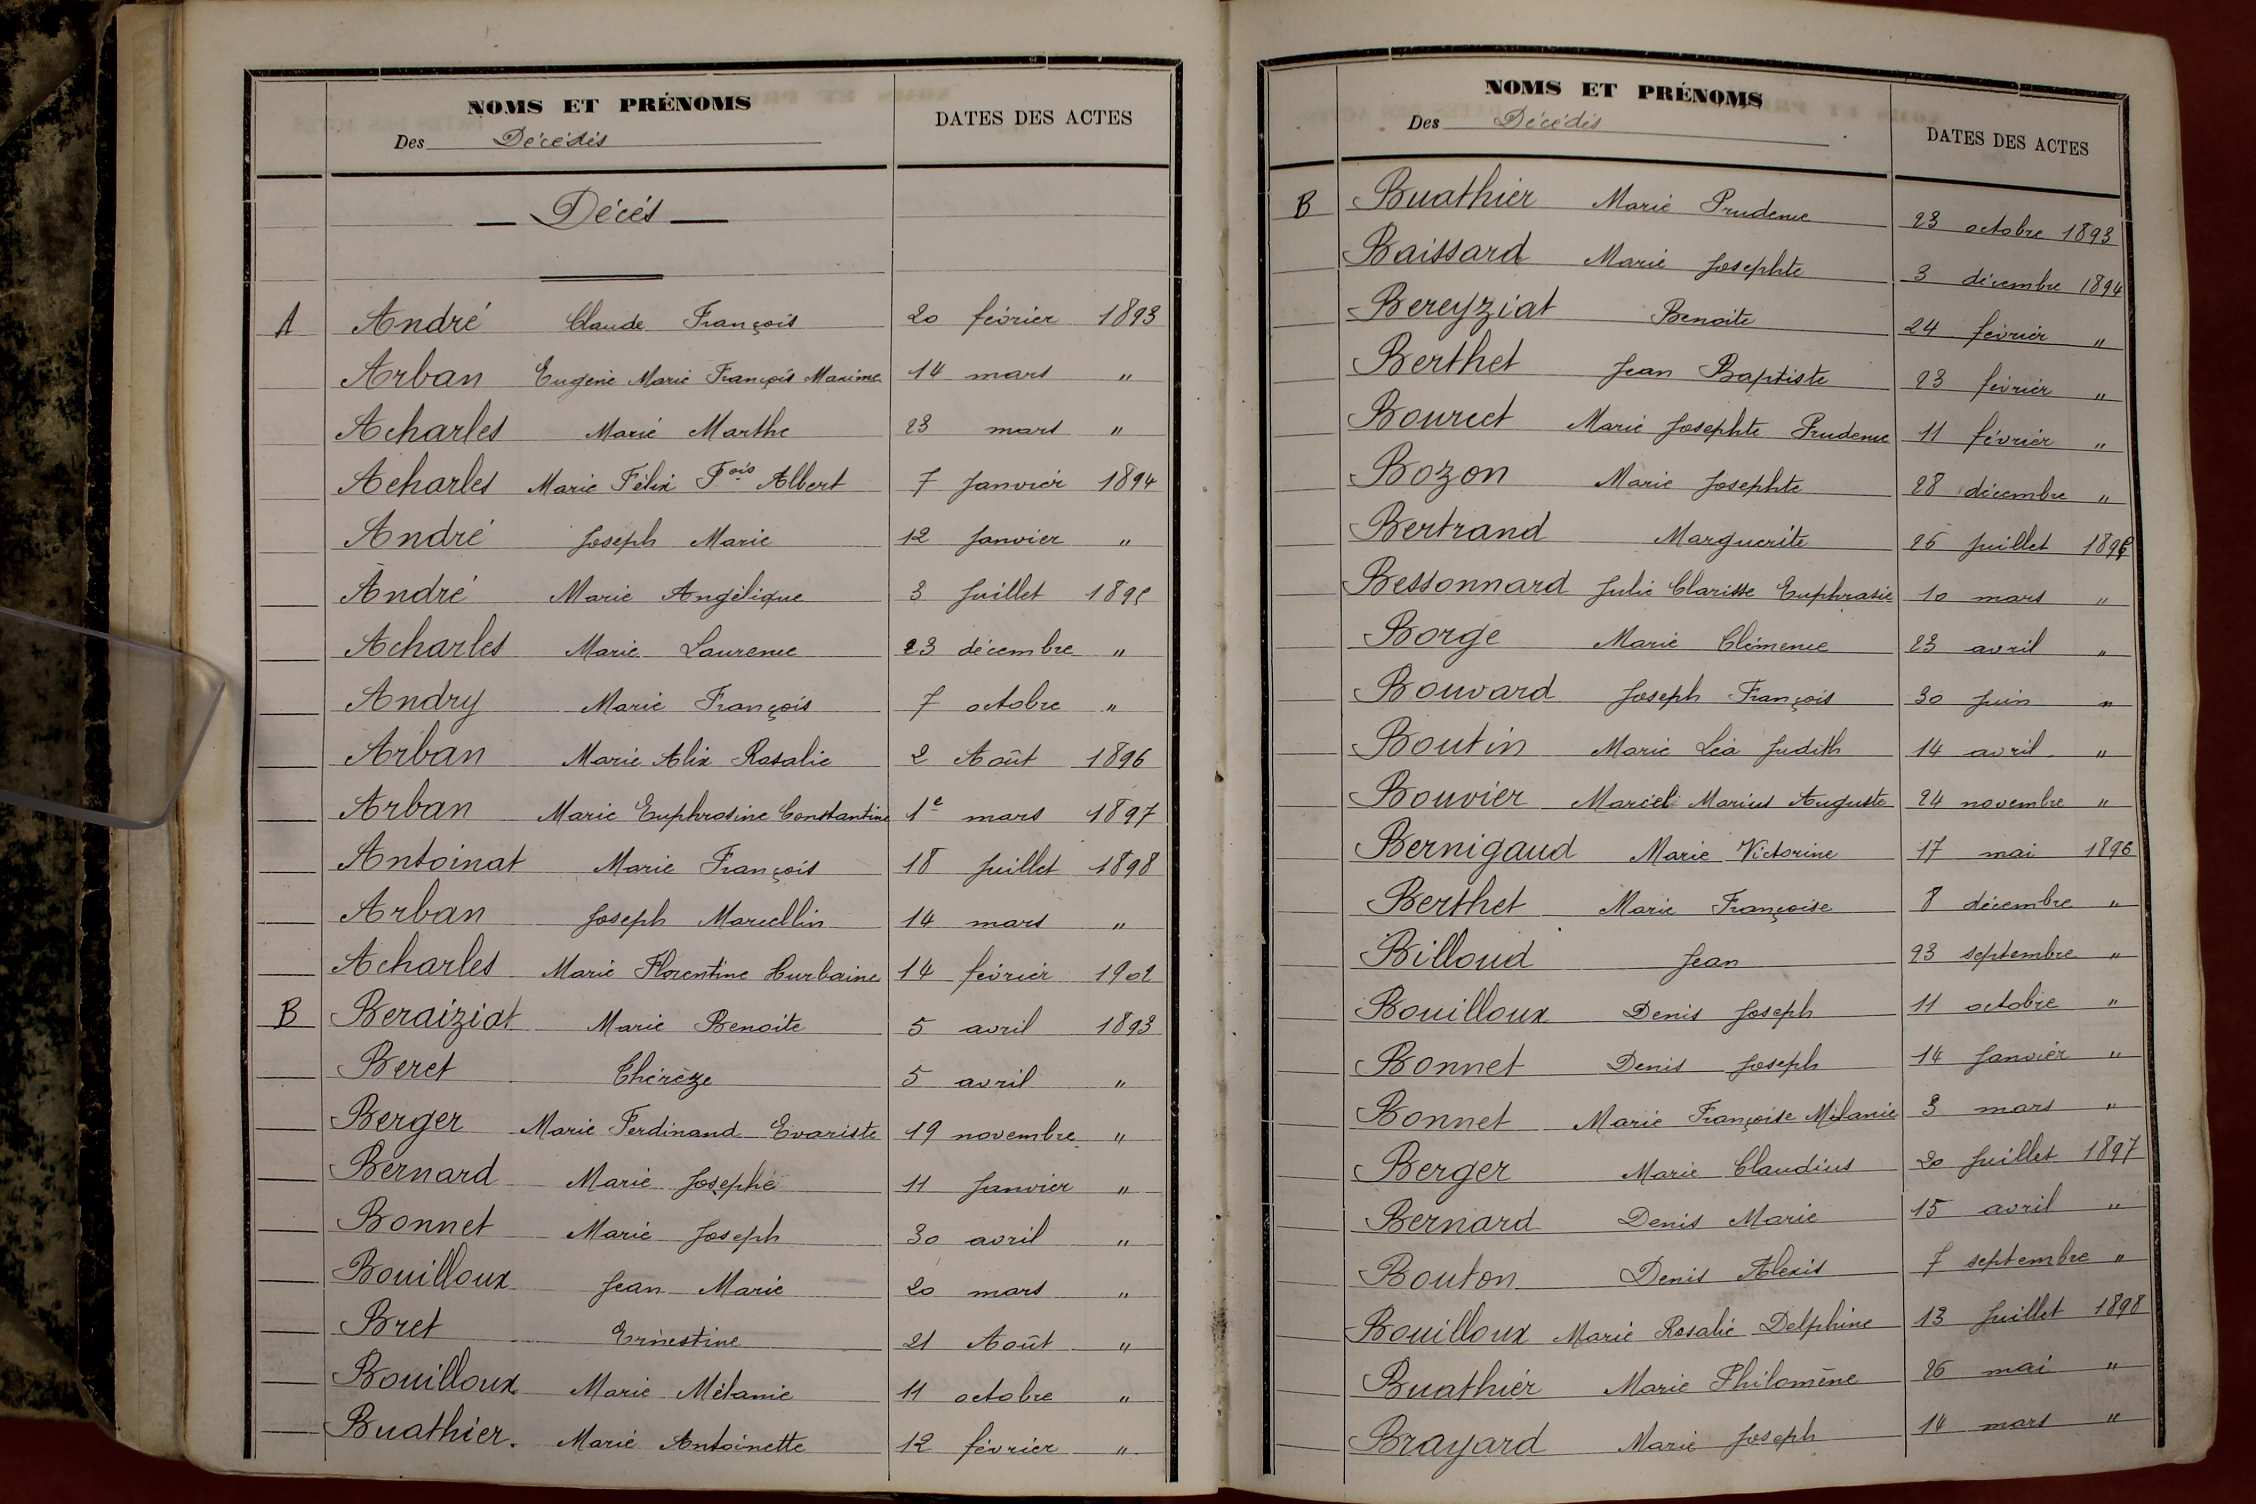 NOMS ET PRÉNOMS
Des Décédés
DATES DES ACTES
Décés
A André Claude François 20 février 1893
Arban Eugène Marie François Maxime 14 mars "
Acharles Marie Marthe 23 mars "
Acharles Marie Félix Fois Albert 7 Janvier 1894
André Joseph Marie 12 Janvier "
André Marie Angélique 3 Juillet 1895
Acharles Marie Laurence 23 décembre "
Andry Marie François 7 octobre "
Arban Marie Alix Rosalie 2 Août 1896
Arban Marie Euphrosine Constantine 1e mars 1897
Antoinat Marie François 18 Juillet 1898
Arban Joseph Marcellin 14 mars "
Acharles Marie Florentine Hurbaine 14 février 1902
B Beraiziat Marie Benoite 5 avril 1893
Beret Thérèze 5 avril "
Berger Marie Ferdinand Evariste 19 novembre "
Bernard Marie Josephe 11 Janvier "
Bonnet Marie Joseph 30 avril "
Bouilloux Jean Marie 20 mars "
Bret Ernestine 21 Août "
Bouilloux Marie Mélanie 11 octobre "
Buathier. Marie Antoinette 12 février "
NOMS ET PRÉNOMS
Des Décédés
DATES DES ACTES
B Buathier Marie Prudence 23 octobre 1893
Baissard Marie Josephte 3 décembre 1894
Bereyziat Benoite 24 février "
Berthet Jean Baptiste 23 février "
Bourcet Marie Josephte Prudence 11 février "
Bozon Marie Josephte 28 décembre "
Bertrand Marguerite 26 Juillet 1895
Bessonnard Julie Clarisse Euphrasie 10 mars "
Borge Marie Clémence 23 avril "
Bouvard Joseph François 30 Juin "
Boutin Marie Léa Judith 14 avril "
Bouvier Marcel Marius Auguste 24 novembre "
Bernigaud Marie Victorine 17 mai 1896
Berthet Marie Françoise 8 décembre "
Billoud Jean 23 septembre "
Bouilloux Denis Joseph 11 octobre "
Bonnet Denis Joseph 14 Janvier "
Bonnet Marie Françoise Mélanie 3 mars "
Berger Marie Claudius 20 Juillet 1897
Bernard Denis Marie 15 avril "
Bouton Denis Alexis 7 septembre "
Bouilloux Marie Rosalie Delphine 13 Juillet 1898
Buathier Marie Philomène 26 mai "
Brayard Marie Joseph 14 mars "